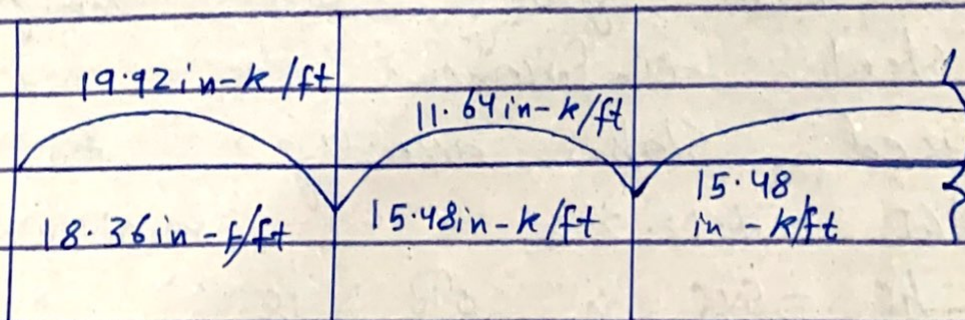 19.92 in-k/ft
11.64 in-k/ft
18.36 in-
15.48in-k/ft
15.48
in-k/ft